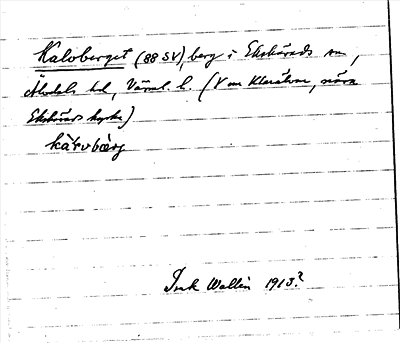 Kalvberget (88 SV), berg i Ekshärads sn,
Älvdals hd, Värml. l. (V om Klarälven, nära
Ekshärads kyrka)
kàrvbærg
Wallin 1913?